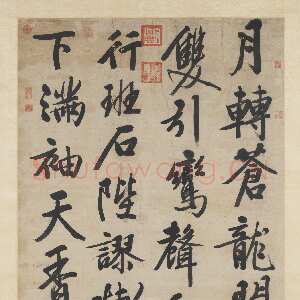 月轉蒼龍
雙引鸞聲
行班石陛謬
下滿袖天香